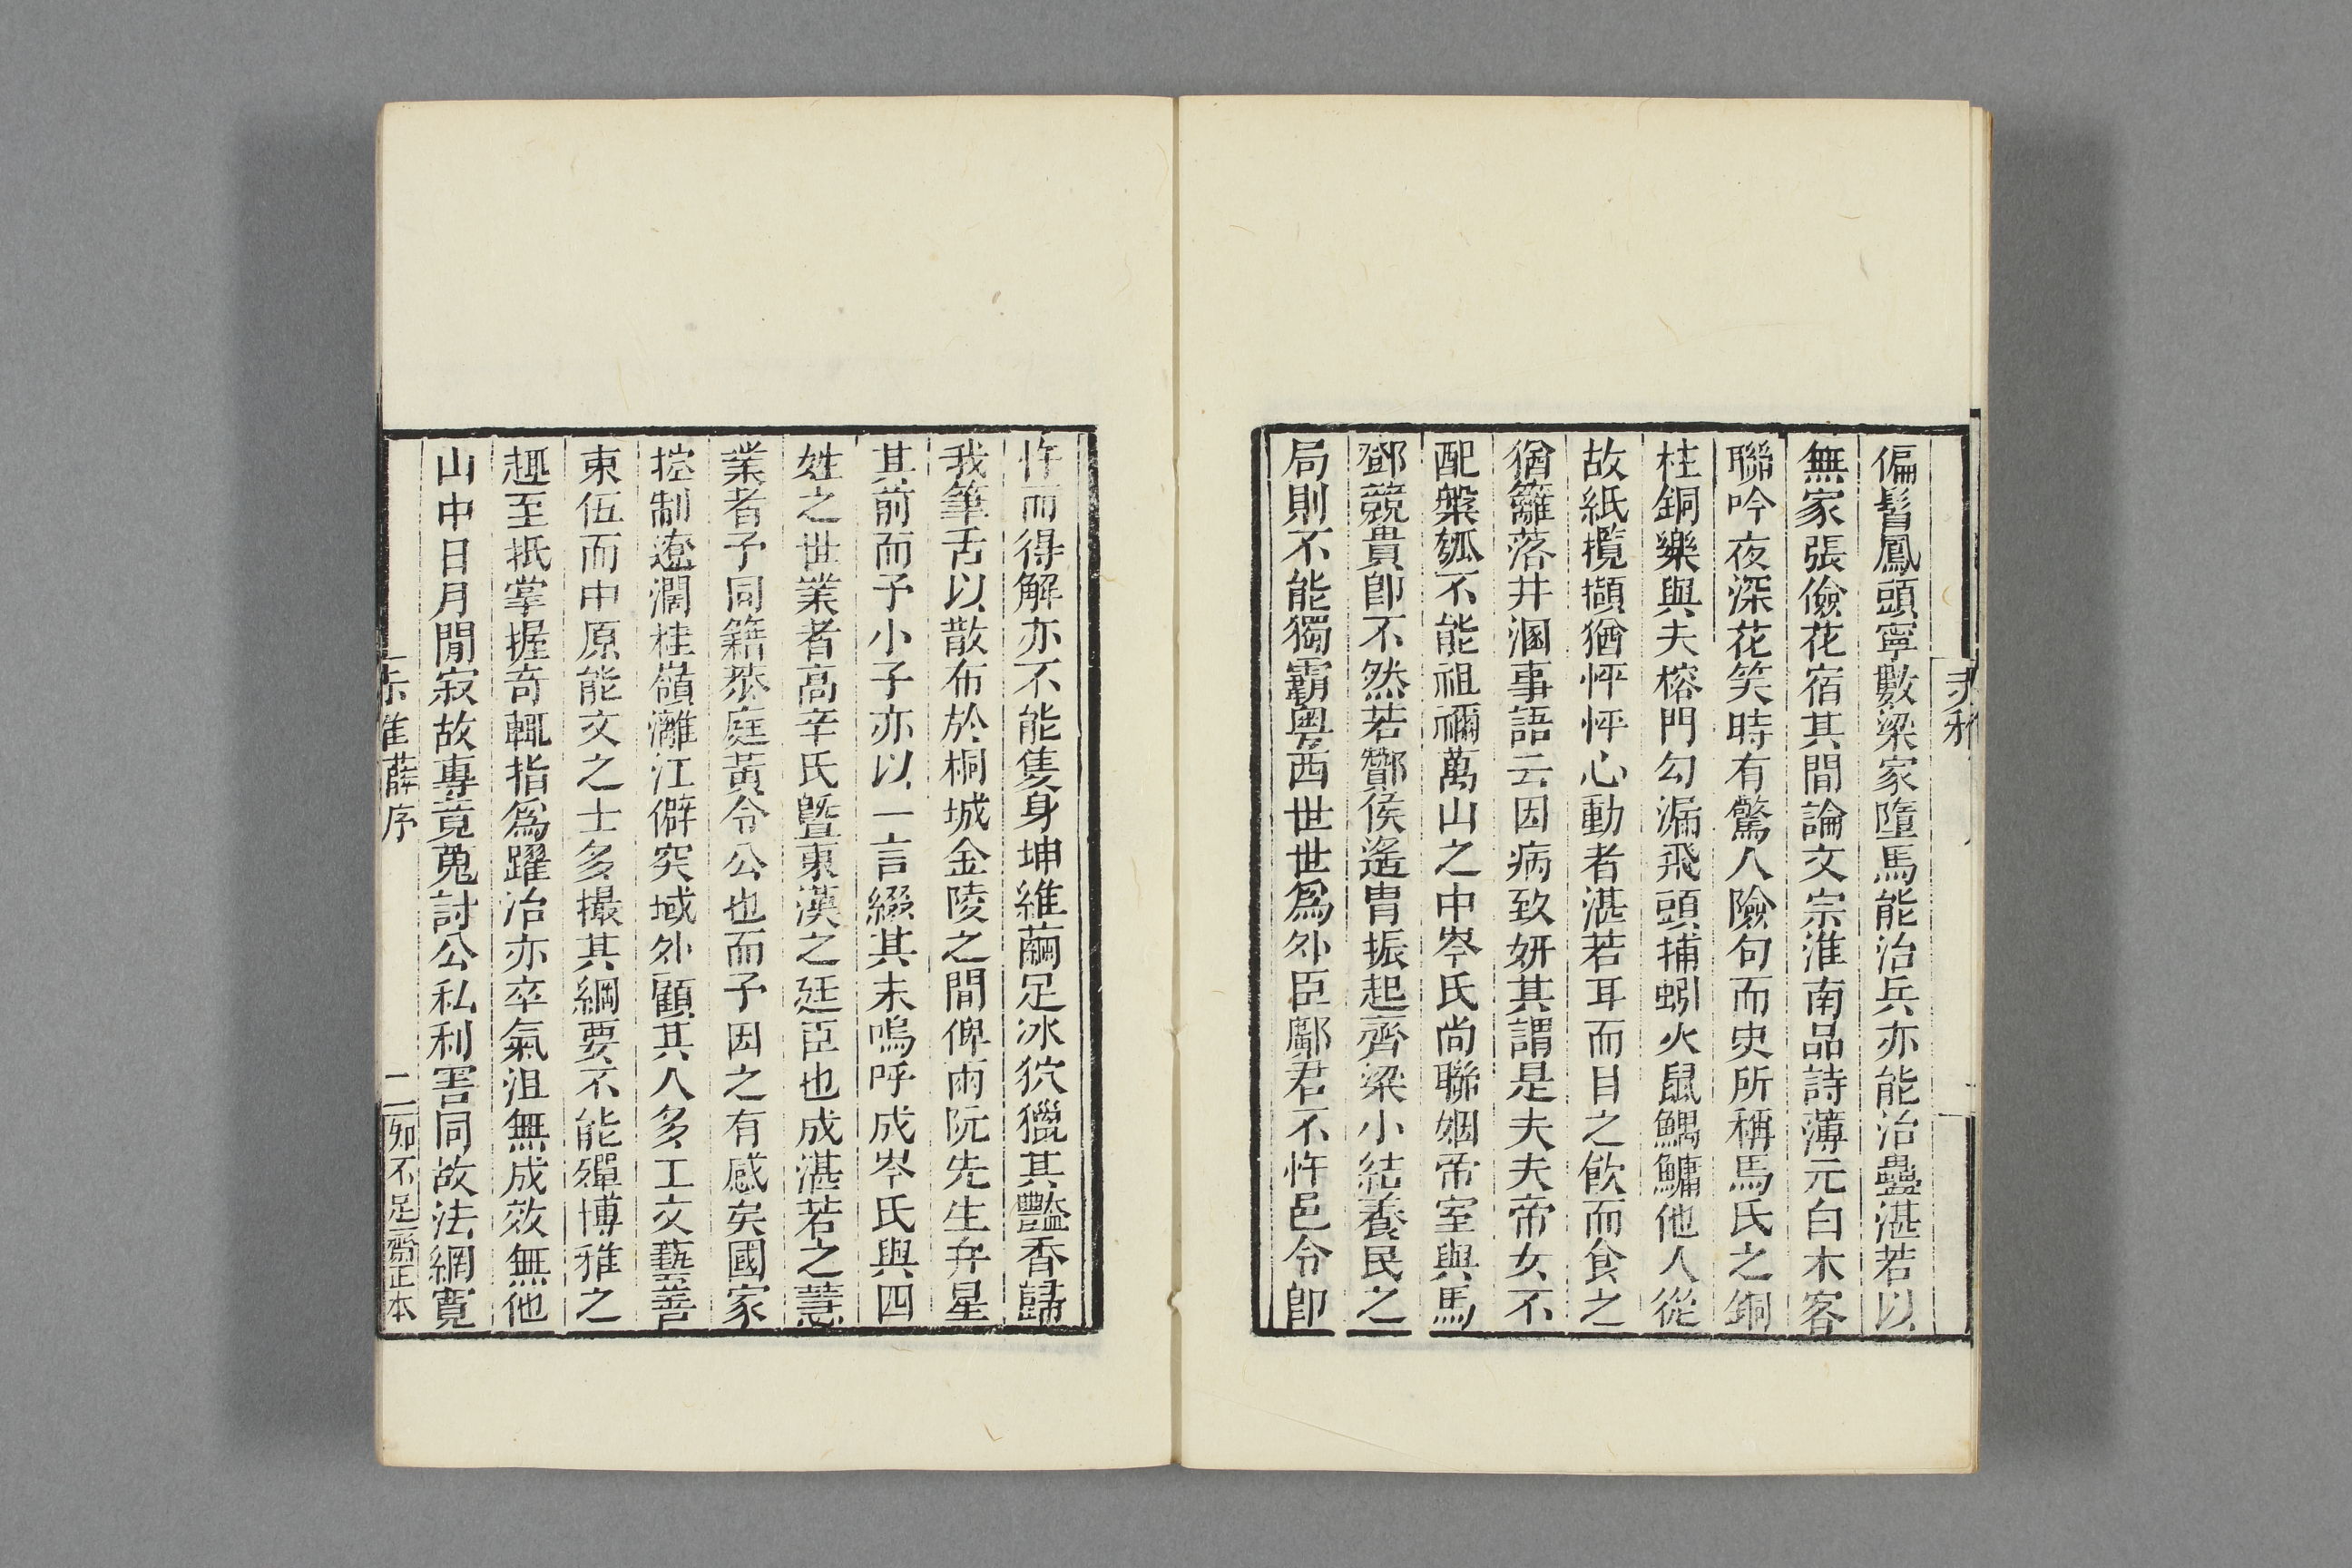 赤雅
偏髻鳳頭寧數梁家墮馬能治兵亦能治蠱湛若以
無家張儉花宿其間論文宗淮南品詩薄元白木客
聯吟夜深花笑時有驚人險句而史所稱馬氏之銅
柱銅樂與夫榕門勾漏飛頭捕蚓火鼠鰅鱅他人從
故紙攬擷猶怦怦心動者湛若耳而目之飲而食之
猶籬落井溷事語云因病致妍其謂是夫夫帝女不
配槃瓠不能祖禰萬山之中岑氏尚聯姻帝室與馬
鄧競貴卽不然若酇侯遙胄振起齊梁小結養民之
局則不能獨霸粵西世世爲外臣鄺君不忤邑令卽
忤而得解亦不能隻身坤維繭足冰狖獵其豔香歸
我筆舌以散布於桐城金陵之間俾兩阮先生弁星
其前而予小子亦以一言綴其末嗚呼成岑氏與四
姓之世業者高辛氏曁東漢之廷臣也成湛若之慧
業者予同籍蔡庭黃令公也而予因之有感矣國家
控制遼濶桂嶺灕江僻突域外顧其人多工文藝善
東伍而中原能文之士多撮其綱要不能殫博雅之
趣至抵掌握奇輒指爲躍冶亦卒氣沮無成效無他
山中日月閒寂故專竟蒐討公私利害同故法網寬
赤雅薛序
二
知不足齋正本